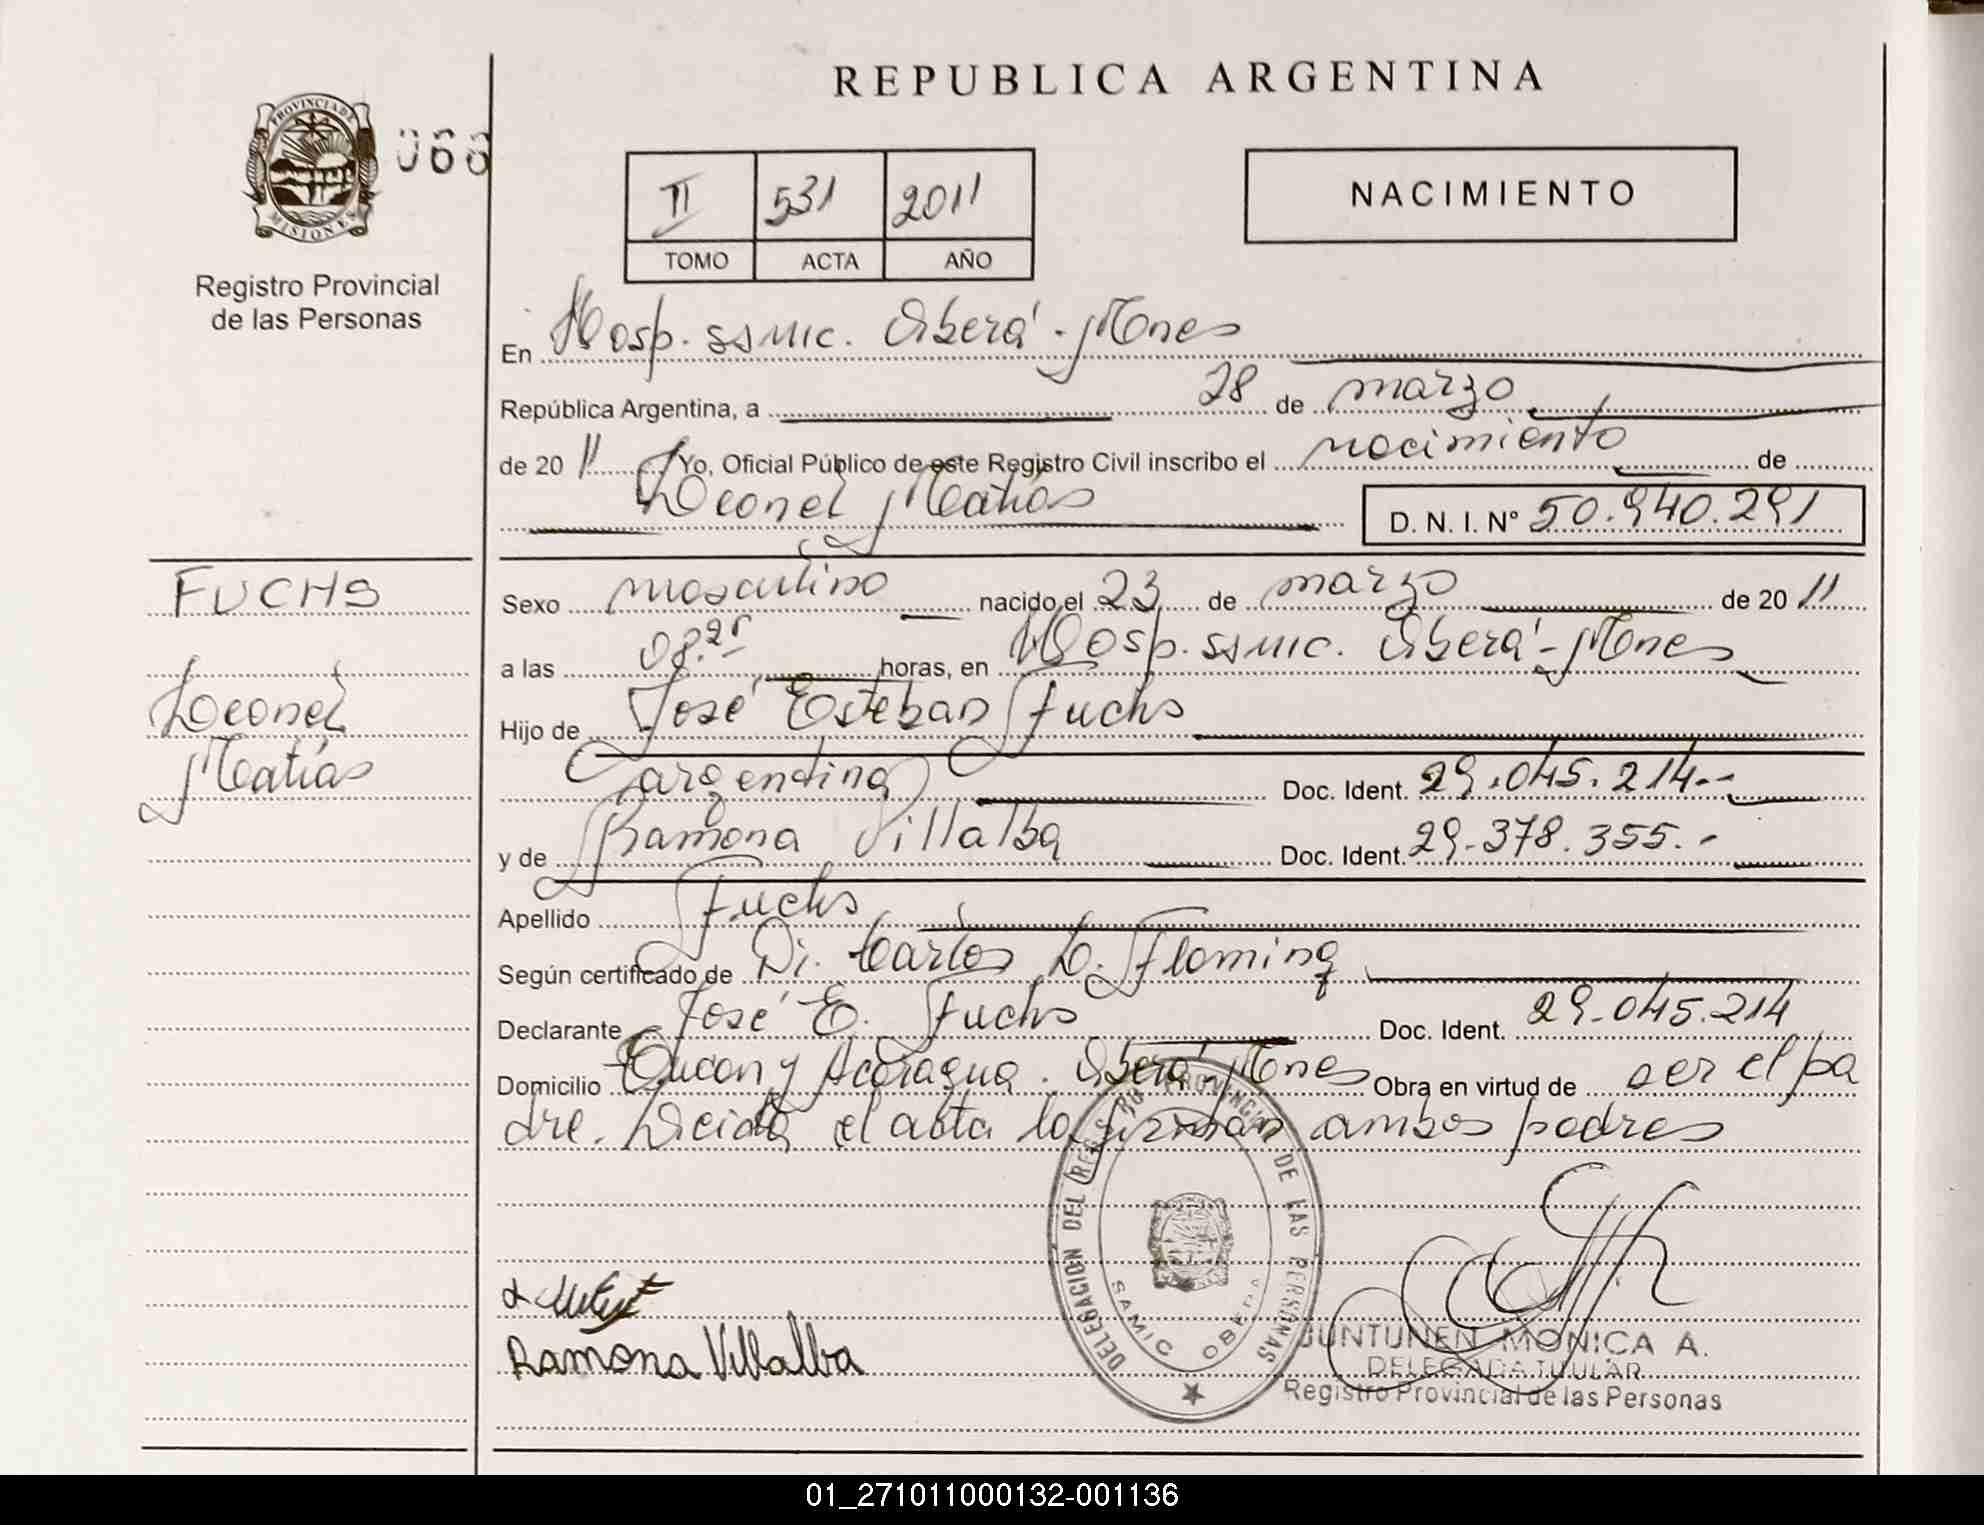 REPUBLICA ARGENTINA
PROVINCIA DE MISIONES
066
Registro Provincial
de las Personas
II 531 2011
TOMO ACTA AÑO
NACIMIENTO
En Hosp. SAMIC. Oberá - Mnes
República Argentina, a 28 de marzo
de 2011 Yo, Oficial Público de este Registro Civil inscribo el nacimiento de
Leonel Matías D. N. I. Nº 50.940.291
FUCHS
Leonel
Matías
Sexo masculino nacido el 23 de marzo de 2011
a las 08.25 horas, en Hosp. SAMIC. Oberá - Mnes
Hijo de José Esteban Fuchs
argentina Doc. Ident. 29.045.214.-
y de Ramona Villalba Doc. Ident. 29.378.355.-
Apellido Fuchs
Según certificado de Di. Carlos L. Fleming
Declarante José E. Fuchs Doc. Ident. 29.045.214
Domicilio y Acaragua. Oberá - Mnes Obra en virtud de ser el pa
dre. Leida el acta la firman ambos padres
Ramona Villalba
DELEGACION DEL REG. PROVINCIAL DE LAS PERSONAS
SAMIC OBERA
JUNTUNEN MONICA A.
DELEGADA TITULAR
Registro Provincial de las Personas
01_271011000132-001136